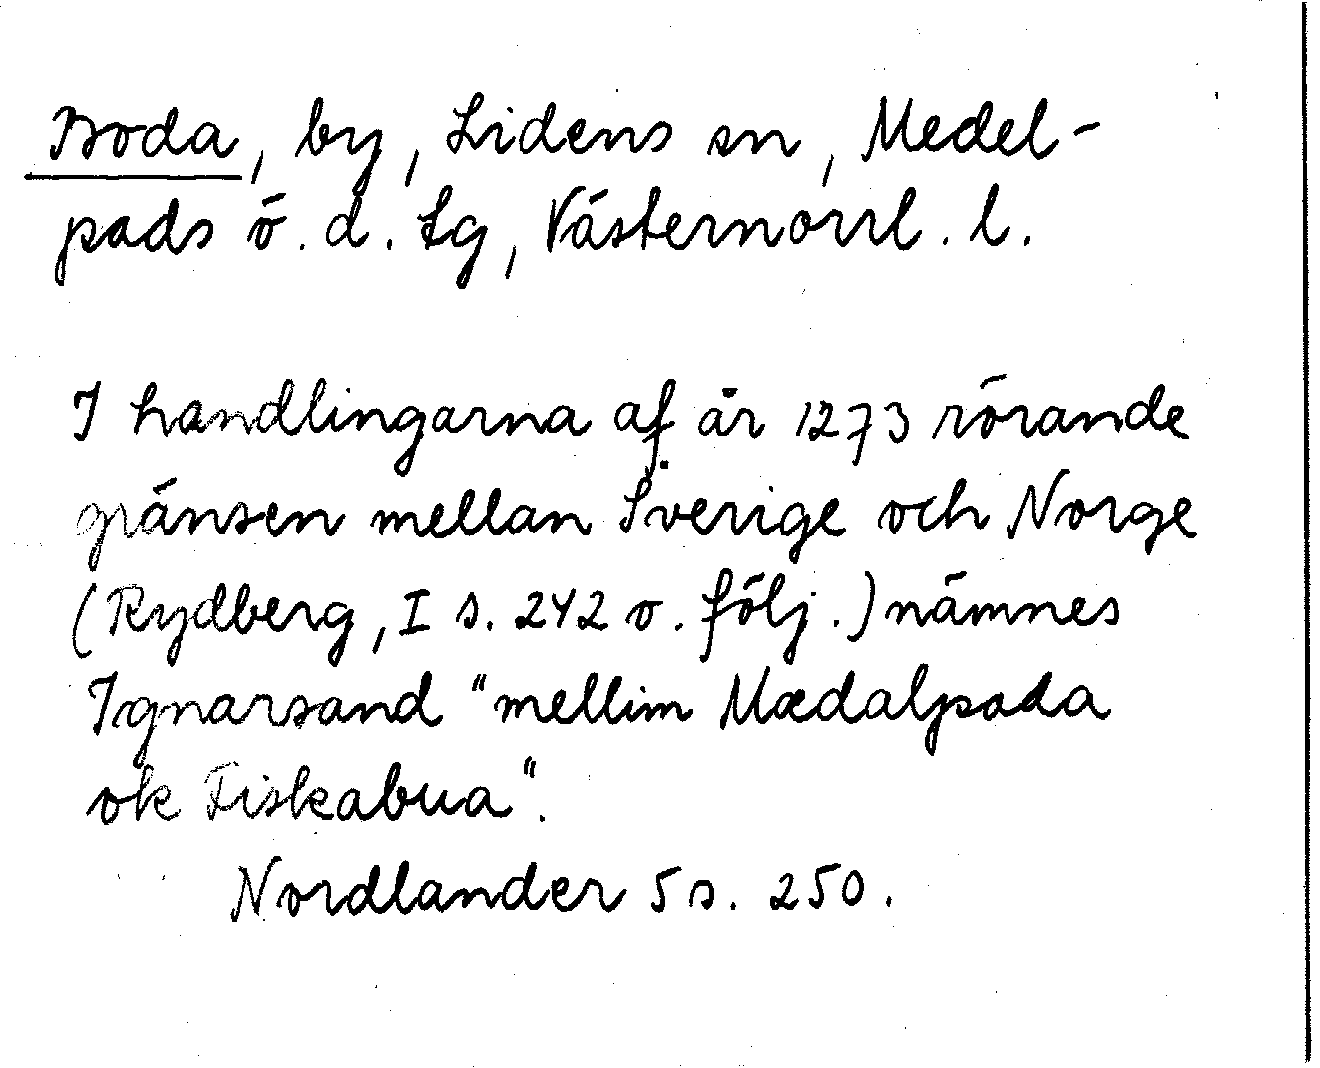 Boda, by, Lidens sn, Medel-
pads ö. d. tg, Västernorrl. l.
I handlingarna af år 1273 rörande
gränsen mellan Sverige och Norge
(Rydberg, I s. 242 o. följ.) nämnes
Ignarsand "mellim Mædalpada
ok Fiskabua".
Nordlander 5 s. 250.